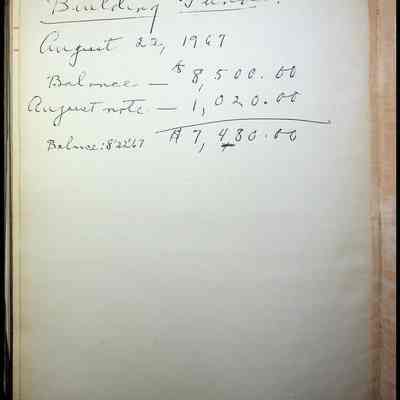 Building Fund.
August 22, 1967
Balance — $ 8,500.00
August note — 1,020.00
Balance: 8'22'67 $ 7,480.00